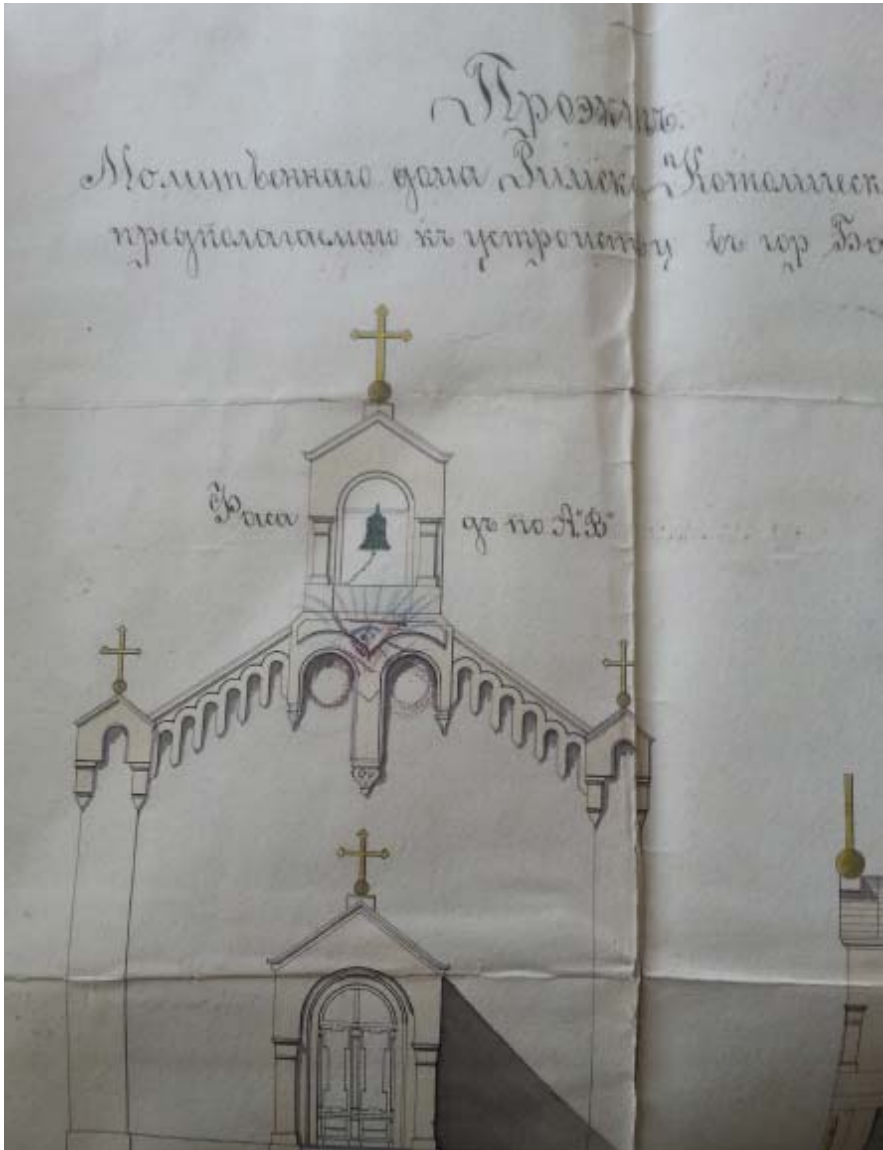 Проэктъ
Молитвеннаго дома Римско Католическ
предполагаемаго къ устройству въ гор Ба
Фаса дъ по А"В"